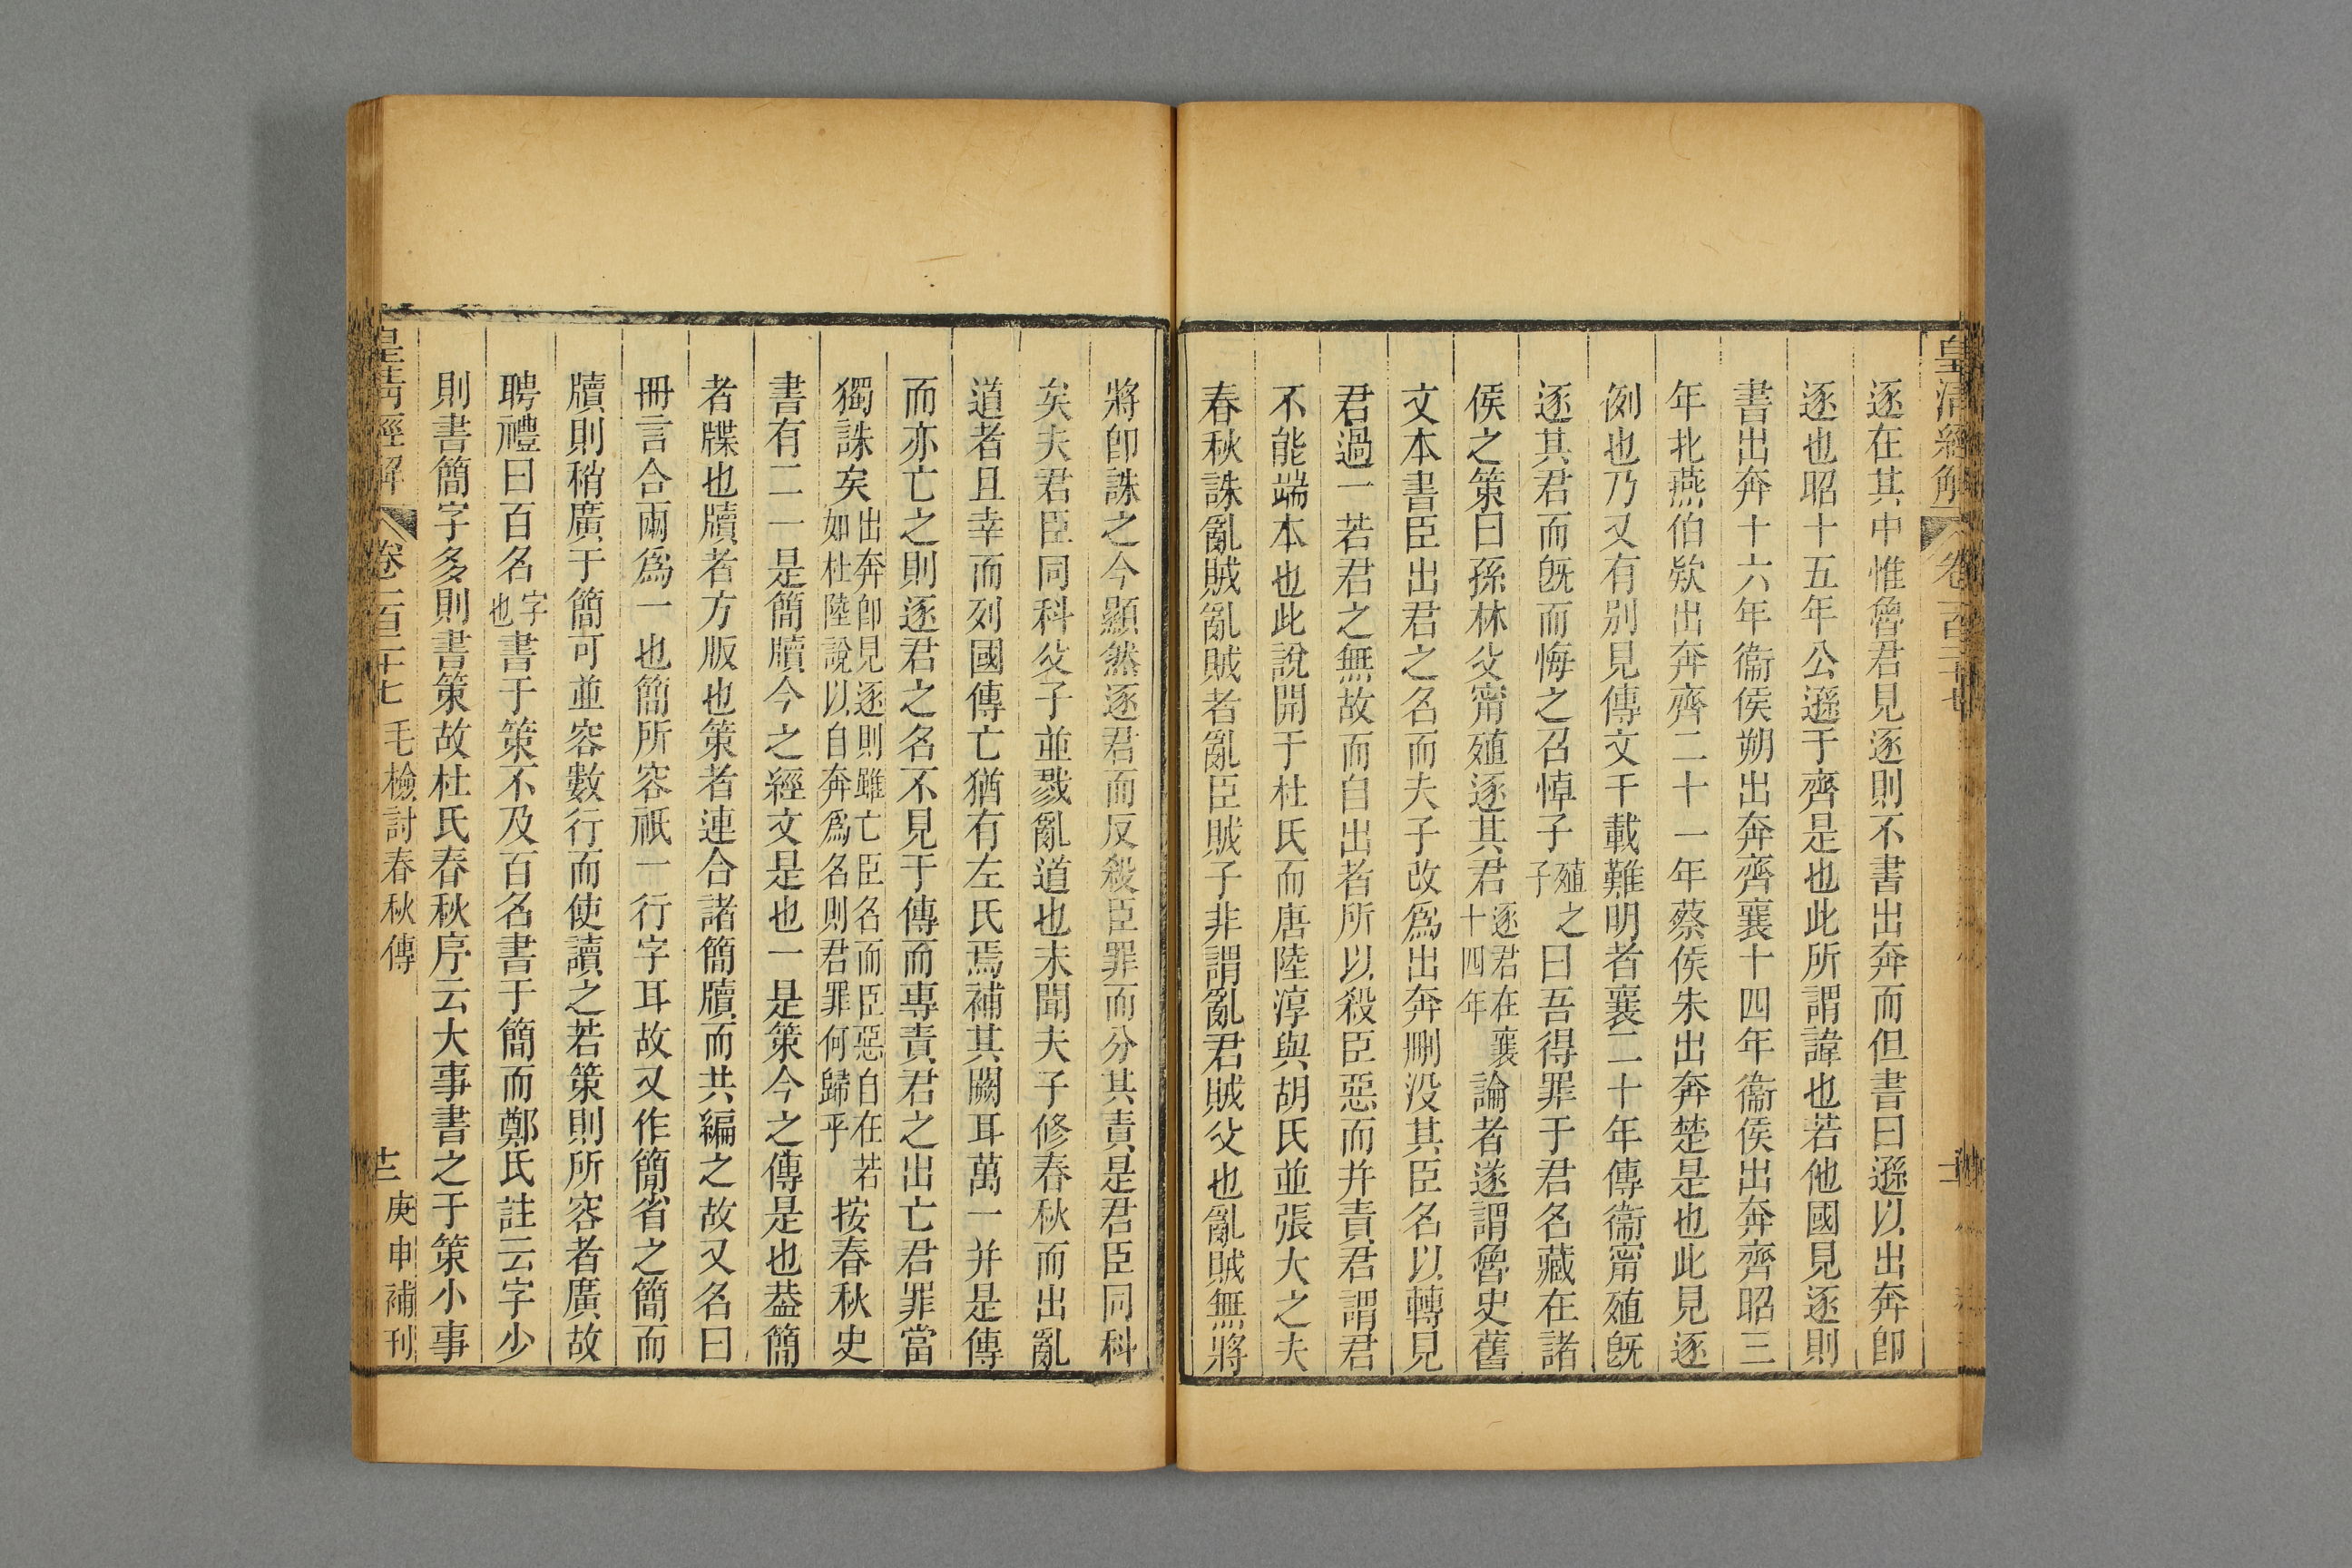 皇清經解
卷一百二十七
逐在其中惟魯君見逐則不書出奔而但書曰遜以出奔卽
逐也昭十五年公遜于齊是也此所謂諱也若他國見逐則
書出奔十六年衞侯朔出奔齊襄十四年衞侯出奔齊昭三
年北燕伯欵出奔齊二十一年蔡侯朱出奔楚是也此見逐
例也乃又有別見傳文千載難明者襄二十年傳衞甯殖旣
逐其君而旣而悔之召悼子殖之子曰吾得罪于君名藏在諸
侯之策曰孫林父甯殖逐其君逐君在襄十四年論者遂謂魯史舊
文本書臣出君之名而夫子改爲出奔刪没其臣名以轉見
君過一若君之無故而自出者所以殺臣惡而并責君謂君
不能端本也此說開于杜氏而唐陸淳與胡氏並張大之夫
春秋誅亂賊亂賊者亂臣賊子非謂亂君賊父也亂賊無將
將卽誅之今顯然逐君而反殺臣罪而分其責是君臣同科
矣夫君臣同科父子並戮亂道也未聞夫子修春秋而出亂
道者且幸而列國傳亡猶有左氏焉補其闕耳萬一并是傳
而亦亡之則逐君之名不見于傳而專責君之出亡君罪當
獨誅矣出奔卽見逐則雖亡臣名而臣惡自在若如杜陸說以自奔爲名則君罪何歸乎按春秋史
書有二一是簡牘今之經文是也一是策今之傳是也葢簡
者牒也牘者方版也策者連合諸簡牘而共編之故又名曰
冊言合兩爲一也簡所容祇一行字耳故又作簡省之簡而
牘則稍廣于簡可並容數行而使讀之若策則所容者廣故
聘禮曰百名字也書于策不及百名書于簡而鄭氏註云字少
則書簡字多則書策故杜氏春秋序云大事書之于策小事
皇淸經解
卷一百二十七
毛檢討春秋傳
庚申補刊